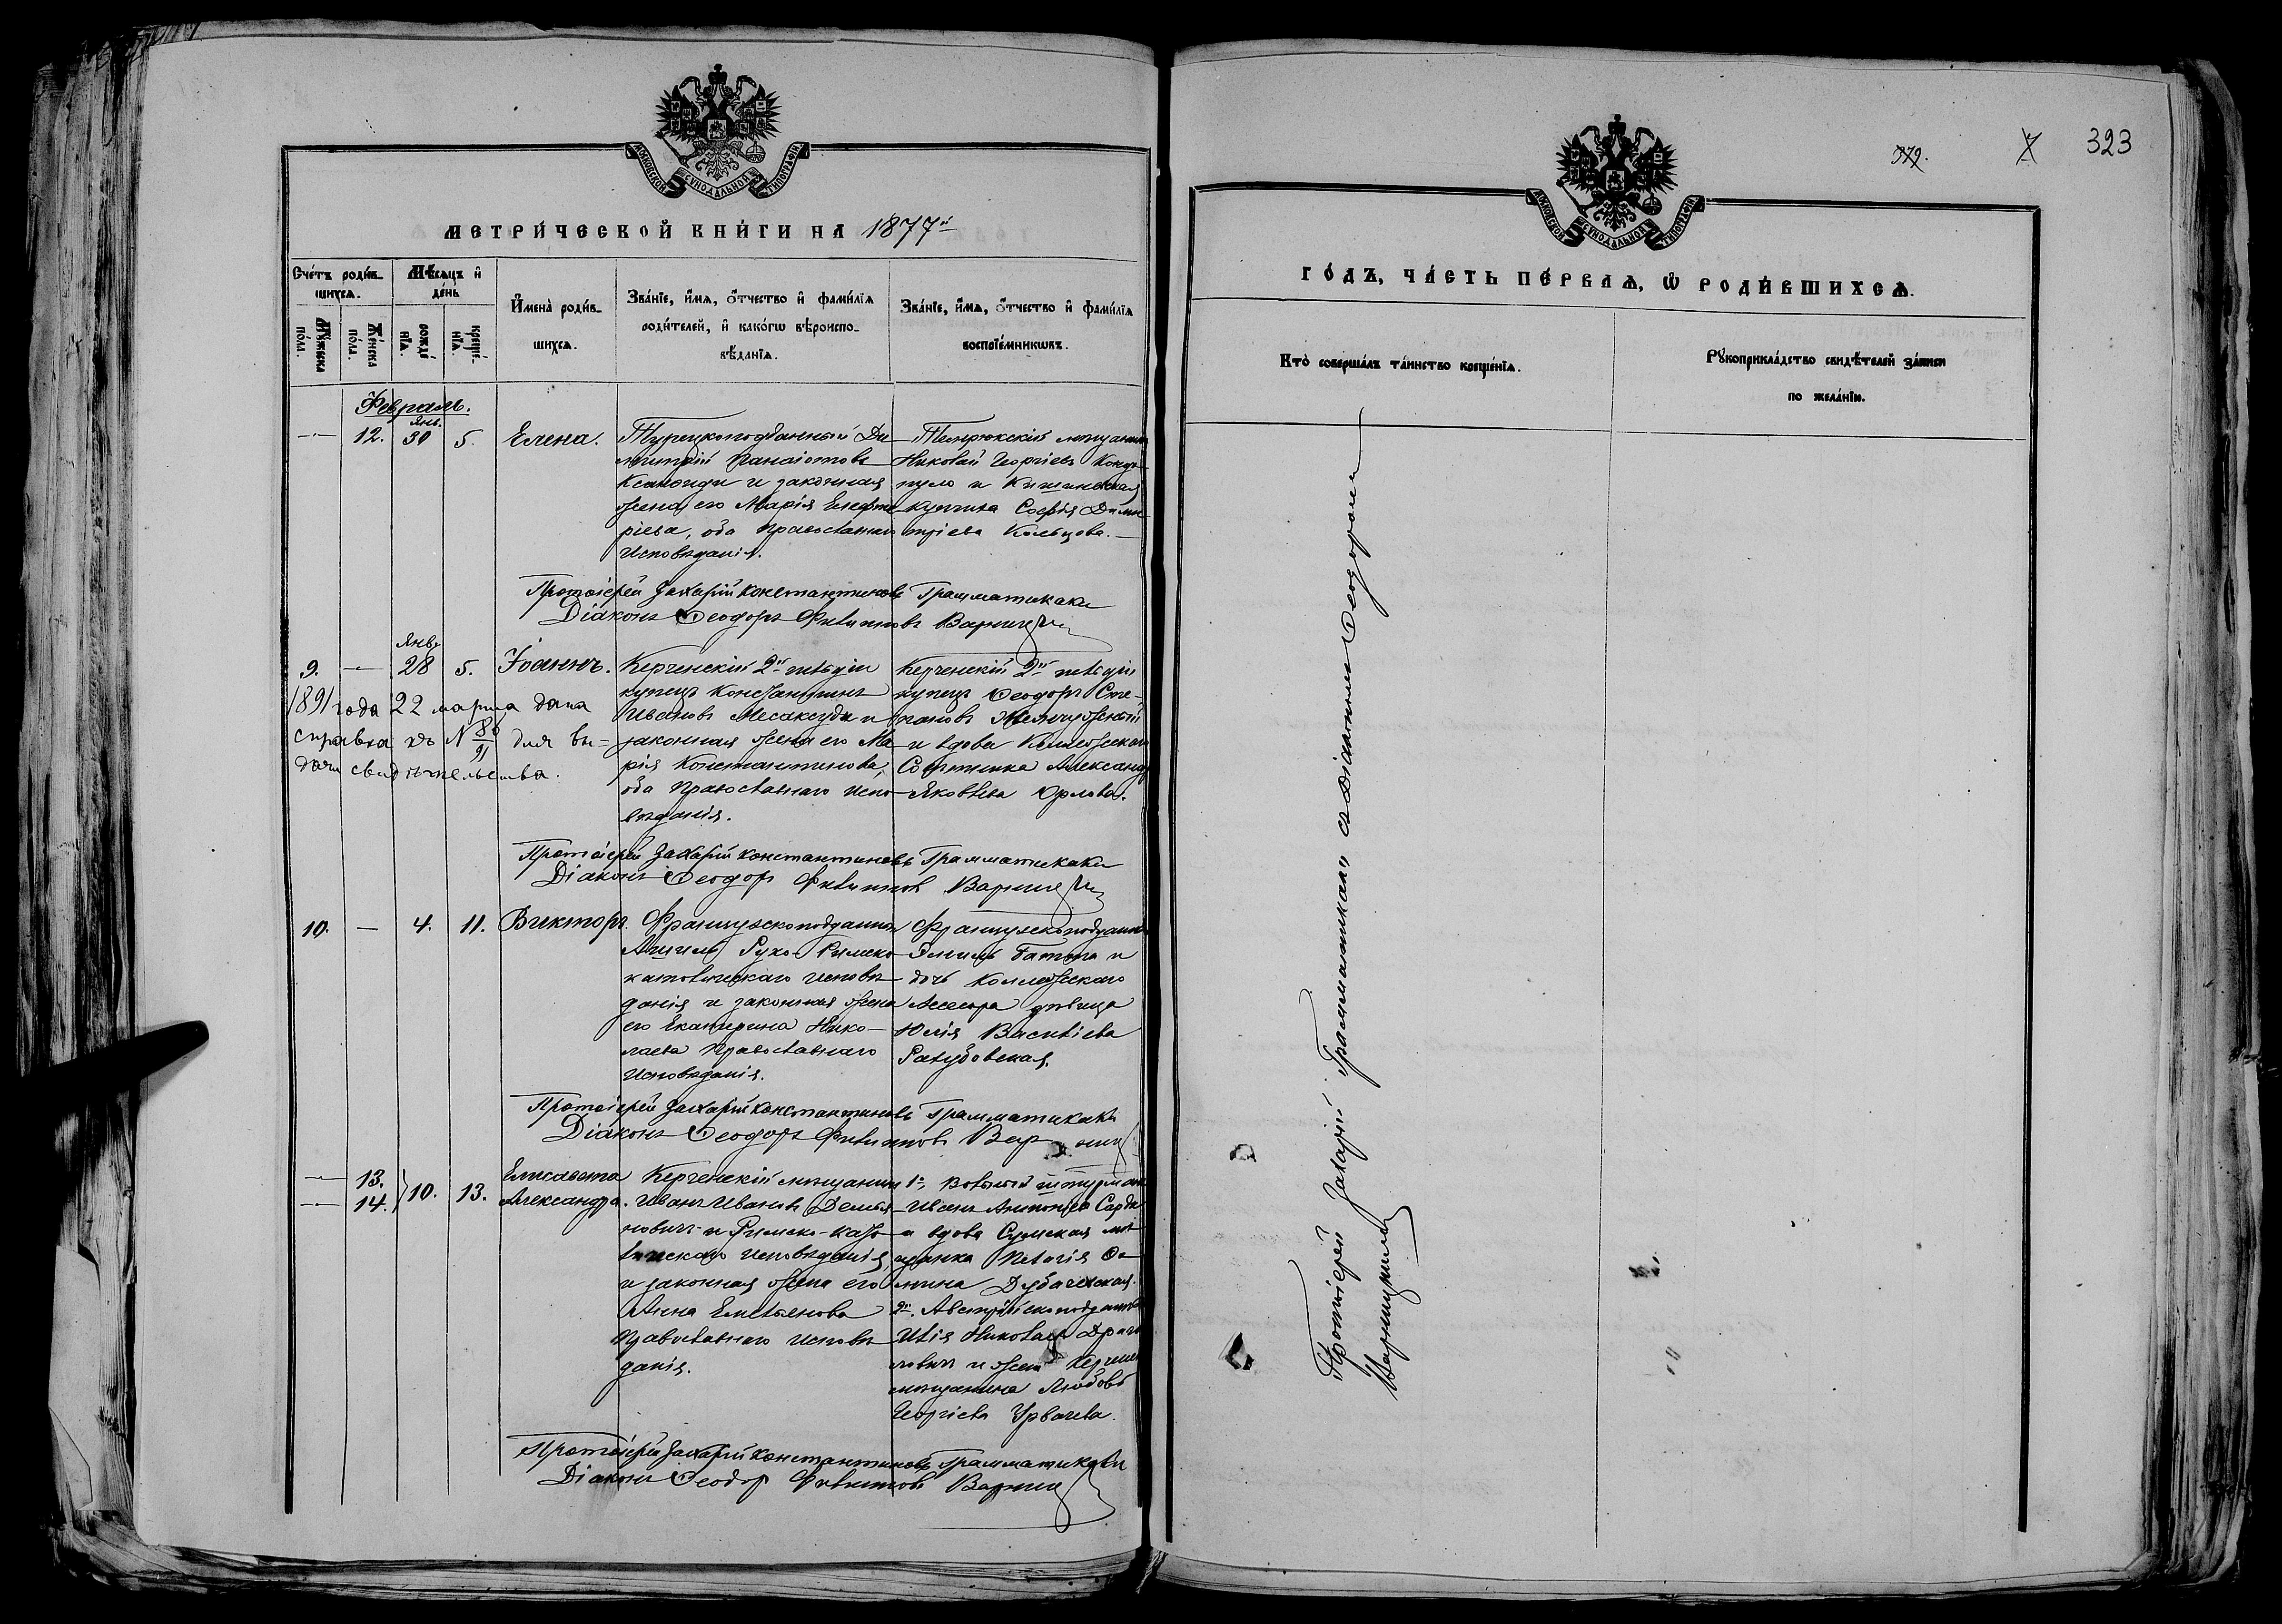 МОСКОВСКОЙ СУНОДАЛЬНОЙ ТИПОГРАФІИ
МЕТРИ́ЧЕСКОЙ КНИ́ГИ НА 1877й
Сче́тъ роди́в-
шихсѧ.
Мѣ́сѧцъ и҆
де́нь
Мꙋ́жеска
по́ла.
Же́нска
по́ла.
рожде́
нїѧ.
креще́-
нїѧ.
И҆мена̀ роди́в-
шихсѧ.
Зва́нїе, и҆́мѧ, ѻ҆́тчество и҆ фамі́лїѧ
роди́телей, и҆ како́гѡ вѣроиспо-
вѣ́данїѧ.
Зва́нїе, и҆́мѧ, ѻ҆́тчество и҆ фамі́лїѧ
воспрїе́мникѡвъ.
Февраль.
Янв.
— 12. 30 5. Елена.
Турецкоподданный Ди
митрій Панаіотовъ
Ксанопуди и законная
жена его Марія Елефте
ріева, оба Православнаго
Исповѣданія.
Темрюкскій мѣщанин
Николай Георгіевъ Конду
пуло и Кишиневская
купчиха Софія Дими
тріева Кольцова.
Протоіерей Захарій Константиновъ Грамматикаки
Діаконъ Ѳеодоръ Филипповъ
Янв.
9. — 28 5. Іоаннъ.
Керченскій 2й гильдіи
купецъ Константинъ
Ивановъ Месаксуди и
законная жена его Ма
рія Константинова,
оба Православнаго Испо
вѣданія.
Керченскій 2й гильдіи
купецъ Ѳеодоръ Сте-
пановъ
и вдова Коллежскаго
Совѣтника Александра
Яковлева Орлова.
1891 года 22 марта дана
справка за № 80/91 для вы-
дачи свидѣтельства.
Протоіерей Захарій Константиновъ Грамматикаки
Діаконъ Ѳеодоръ Филипповъ
10. — 4. 11. Викторъ.
Французскоподданный
Римско
католическаго исповѣ
данія и законная жена
его Екатерина Нико-
лаева Православнаго
Исповѣданія.
Французскоподданный
Эмиль и
дочь Коллежскаго
Ассесора дѣвица
Юлія Васильева
Протоіерей Захарій Константиновъ Грамматикаки
Діаконъ Ѳеодоръ Филипповъ
— 13.
— 14. } 10. 13.
Елисавета
Александра.
Керченскій мѣщанин
Иванъ Ивановъ Демья
новичъ Римско-като
лическаго исповѣданія,
и законная жена его
Анна Емельянова
Православнаго исповѣ
данія.
1й Вольный штурман
Иванъ Антоновъ
и вдова Сумская мѣ
щанка Пелагія Ѳо
мина
2й Австрійскоподданный
Илія Николаев Драго
ловичъ и жена Керчен
мѣщанина Любовь
Георгіева
Протоіерей Захарій Константиновъ Грамматикаки
Діаконъ Ѳеодоръ Филипповъ
379.
323
МОСКОВСКОЙ СУНОДАЛЬНОЙ ТИПОГРАФІИ
ГО́ДЪ, ЧА́СТЬ ПЕ́РВАѦ, Ѡ҆ РОДИ́ВШИХСѦ.
Кто̀ соверша́лъ та́инство креще́нїѧ.
Рꙋкоприкла́дство свидѣ́телей за́писи
по жела́нїю.
Протоіерей Захарій Грамматикаки съ Діакономъ Ѳеодоромъ